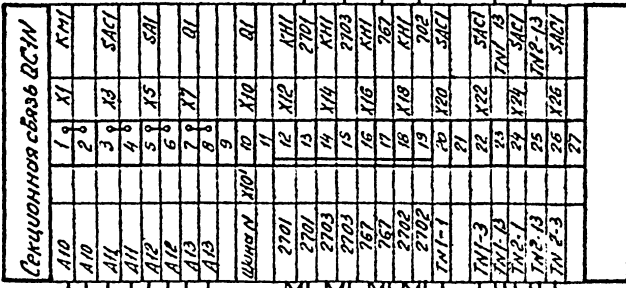 Секционная связь QC1N
A10 1 X1 KM1
A10 2
A11 3 X3 SAC1
A11 4
A12 5 X5 SA1
A12 6
A13 7 X7 Q1
A13 8
9
Шина N X10' 10 X10 Q1
11
2701 12 X12 KH1
2701 13 2701
2703 14 X14 KH1
2703 15 2703
767 16 X16 KH1
767 17 767
2702 18 X18 KH1
2702 19 702
TN1-1 20 X20 SAC1
21
TN1-3 22 X22 SAC1
TN1-13 23 TN1-13
TN2-1 24 X24 SAC1
TN2-13 25 TN2-13
TN2-3 26 X26 SAC1
27